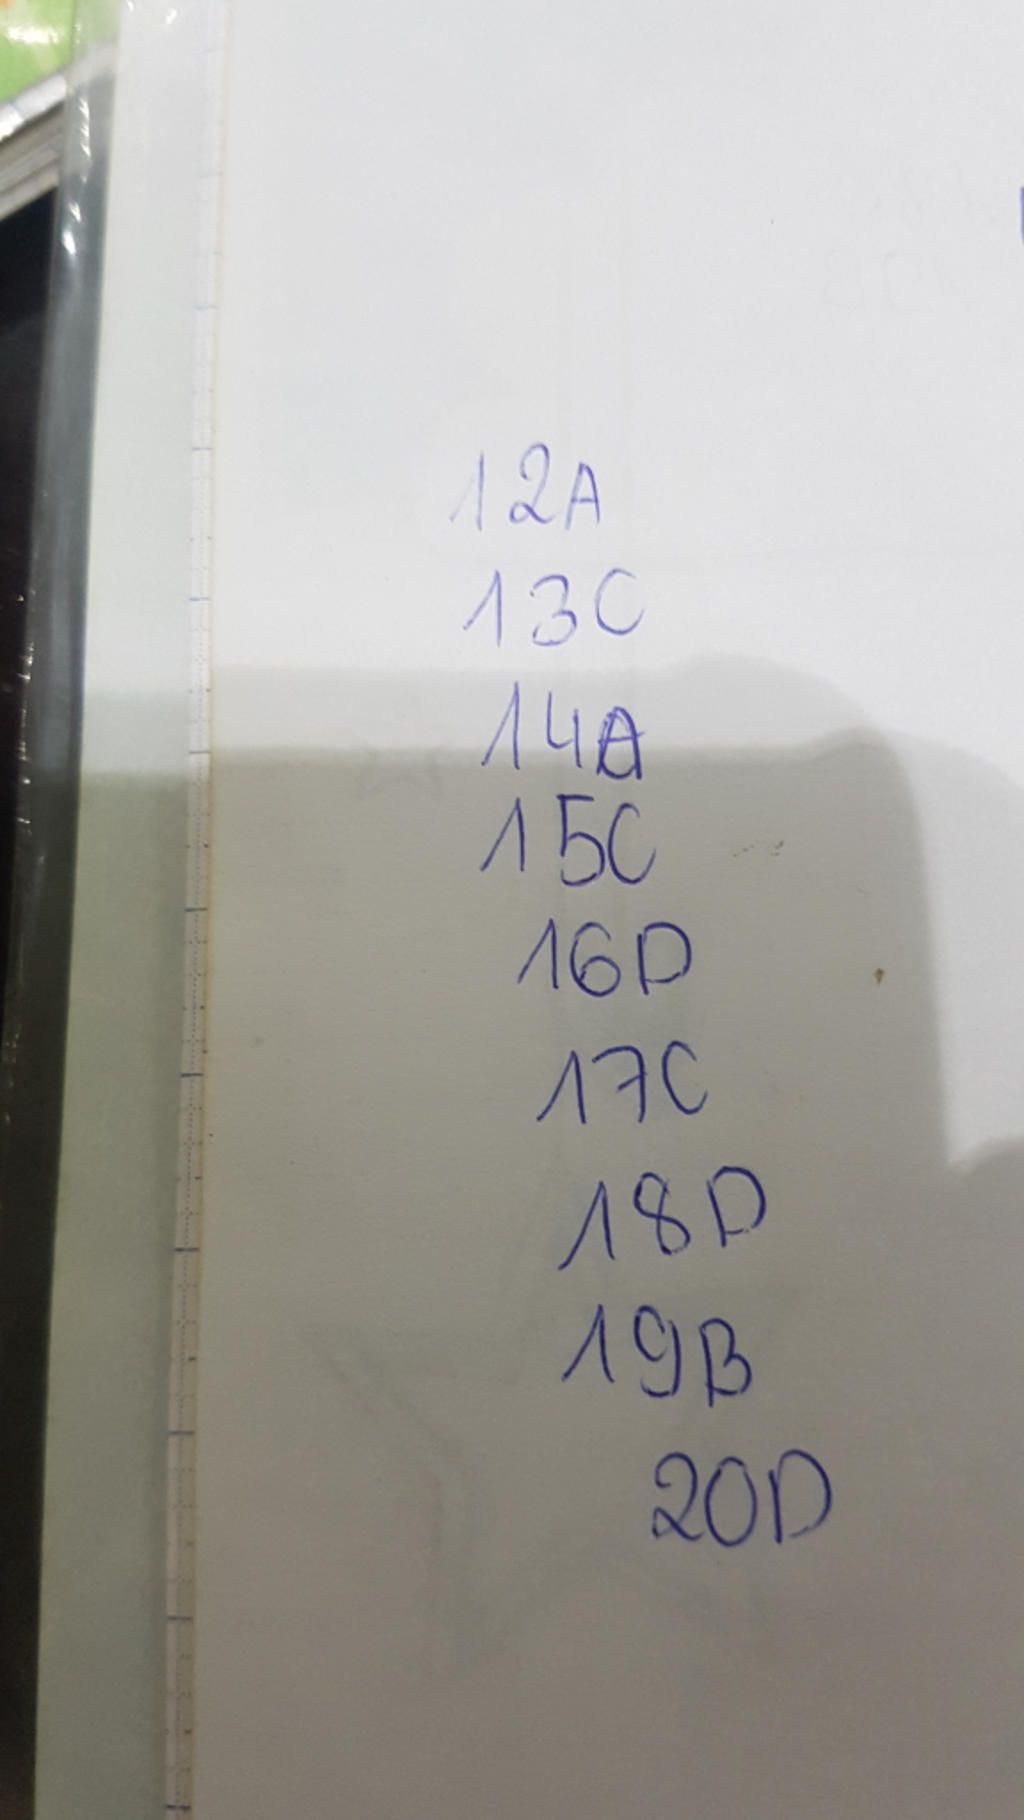 12A
13C
14A
15C
16D
17C
18D
19B
20D